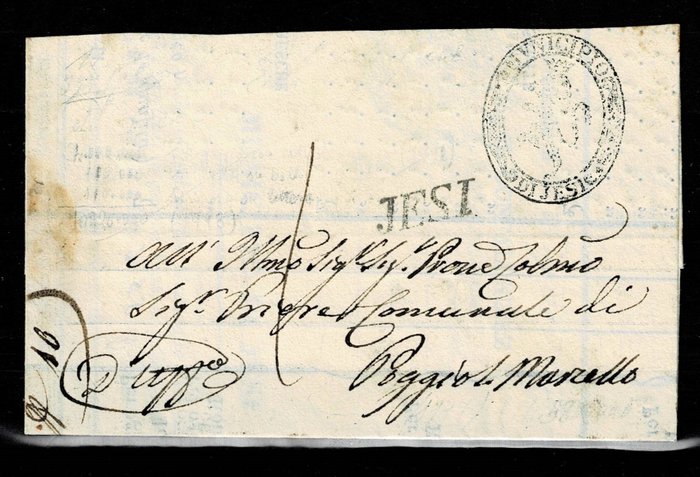 MVNICIPIO
DI JESI
JESI
All' Illmo Sigr Sigr Prone Colmo
Sigr Priore Comunale di
Poggio S. Marcello
D'Uffo